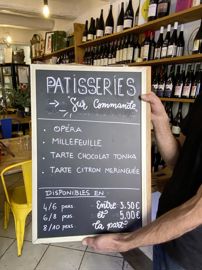 PATISSERIES
→ Sur Commande
. OPÉRA
. MILLEFEUILLE
. TARTE CHOCOLAT TONKA
. TARTE CITRON MERINGUÉE
DISPONIBLES EN
4/6 pers Entre 3.50€
6/8 pers et 5,00€
8/10 pers la part